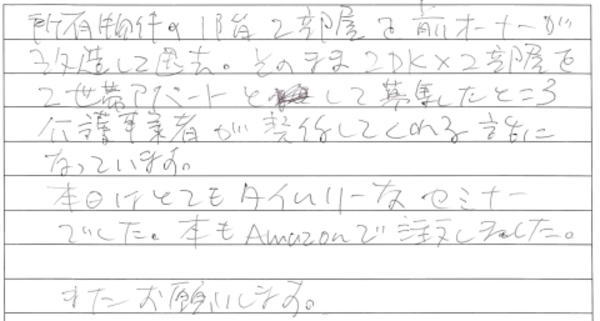 所有物件の1階2部屋を前オーナーが
改造して退去。そのまま2DK×2部屋を
2世帯アパートとして募集したところ
介護事業者が契約してくれる話に
なっています。
本日はとてもタイムリーなセミナー
でした。本もAmazonで注文しました。
またお願いします。